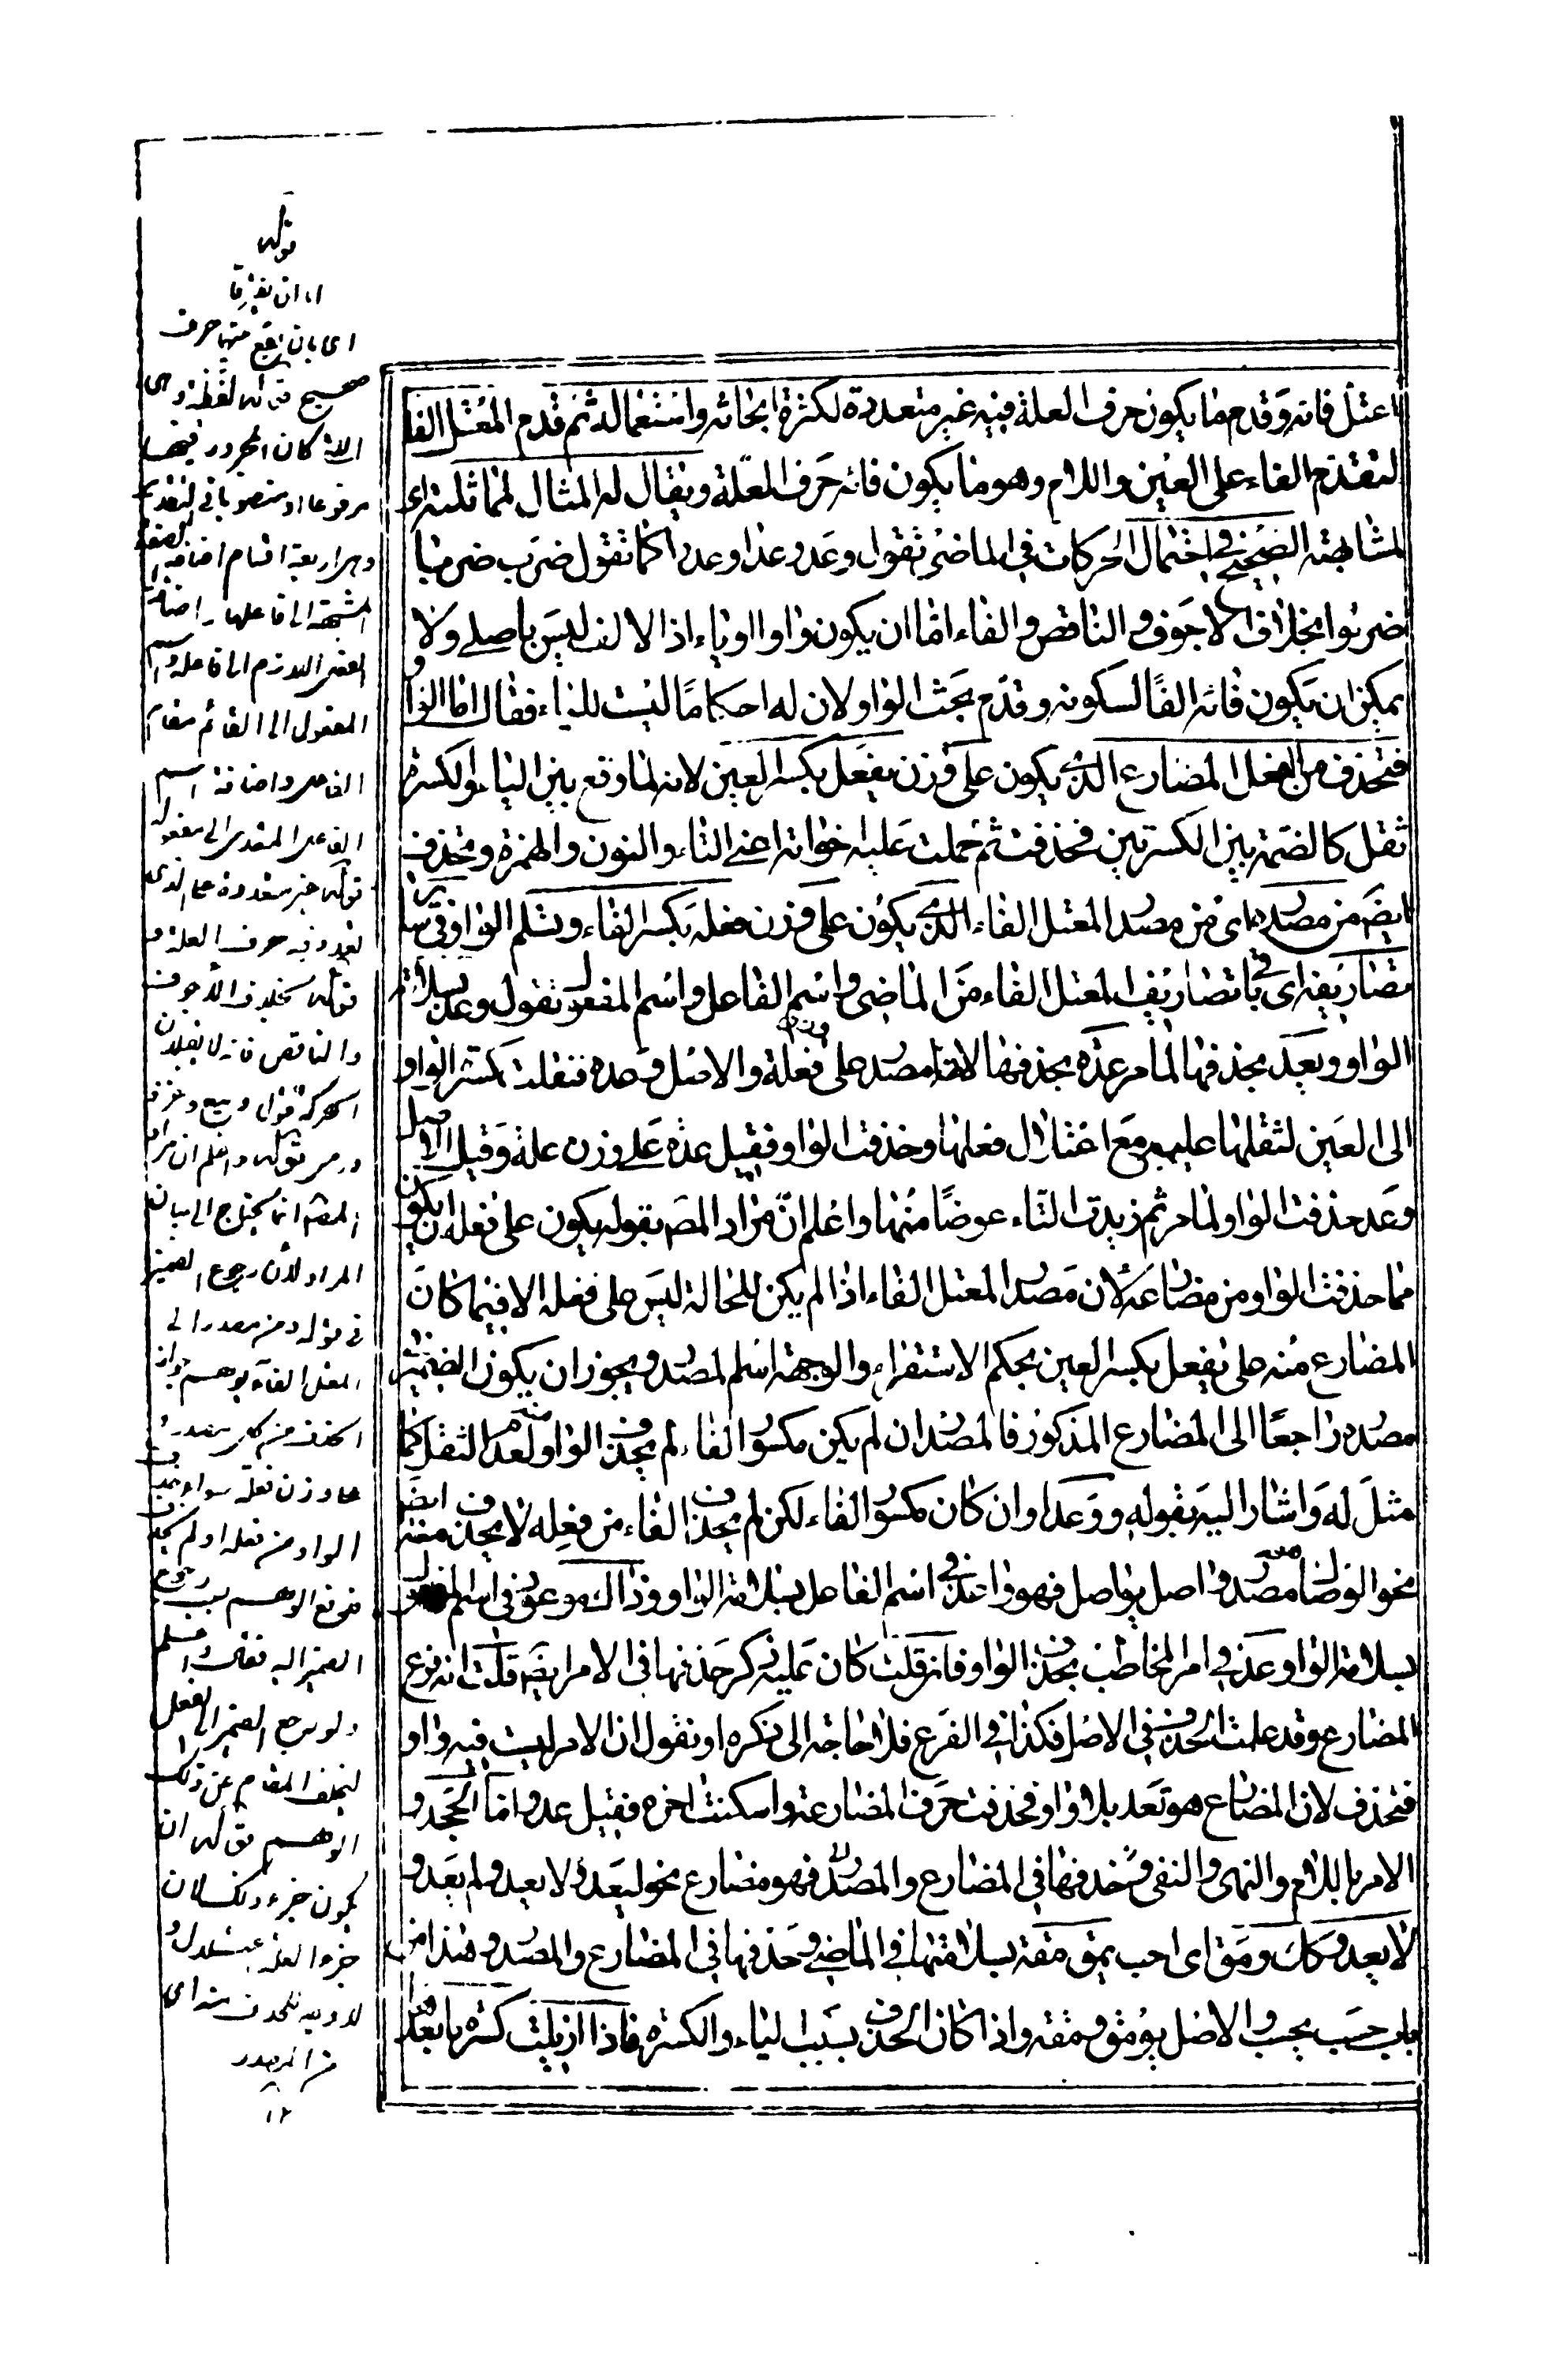 اعتل فائه وقدم ما يكون حرف العلة فيه غير متعددة لكثرة ابحاثه واستعماله ثم قدم المعتل الفا
لتقدم الفاء على العين واللام وهو ما يكون فائه حرف العلة ويقال له المثال لمماثلته اى
لمشابهته الصحيح فى احتمال الحركات فى الماضى تقول وعد وعدا وعدوا كما تقول ضرب ضربا
ضربوا بخلاف الاجوف والناقص والفاء اما ان يكون واوا او ياء اذ الالف ليس باصلى ولا
يمكن ان يكون فائه الفًا لسكونه وقدم بحث الواو لان له احكامًا ليست للياء فقال اما الواو
فتحذف من الفعل المضارع الذى يكون على وزن يفعل بكسر العين لانه لما وقع بين الياء والكسرة
ثقل كالضمة بين الكسرتين فحذفت ثم حملت عليه اخواته اعنى التاء والنون والهمزة وتحذف
ايضَ من مصدره اى من مصدر المعتل الفاء الذى يكون على وزن فعلة بكسر الفاء وتسلم الواو فى سائر
تصاريفه اى فى باقى تصاريف المعتل الفاء من الماضى واسم الفاعل واسم المفعول تقول وعد بسلامة
الواو ويعد بحذفها لما مر عدة بحذفها لانها مصدر على وزن فعلة والاصل وعدة فنقلت كسرة الواو
الى العين لثقلها عليه مع اعتلال فعلها وحذفت الواو فقيل عدة على وزن علة وقيل الاصل
وعد حذفت الواو لما مر ثم زيدت التاء عوضًا منها واعلم ان مراد المصَ بقوله يكون على فعلة ان يكون
مما حذفت الواو من مضارعه لان مصدر المعتل الفاء اذا لم يكن للحالة ليس على فعلة الا فيما كان
المضارع منه على يفعل بكسر العين بحكم الاستقراء والوجهة اسم لمصدر ويجوز ان يكون الضمير فى
مصدره راجعًا الى المضارع المذكور فالمصدر ان لم يكن مكسور الفاء لم يحذف الواو منه لعدم الثقل كما
مثل له واشار اليه بقوله ووعدا وان كان مكسور الفاء لكن لم يحذف الفاء من فعله لا يحذف منه ايضَ
نحو الوصال مصدر واصل يواصل فهو واعد فى اسم الفاعل بسلامة الواو وذاك موعود فى اسم المفعول
بسلامة الواو وعد فى امر المخاطب بحذف الواو فان قلت كان عليه ذكر حذفها فى الامر ايضَ قلت انه فرع
المضارع وقد علمت الحذف فى الاصل فكذا فى الفرع فلا حاجة الى ذكره او نقول ان الامر ليست فيه واو
فتحذف لان المضارع هو تعد بلا واو فحذفت حرف المضارعة واسكنت اخره فقيل عد واما الجحد و
الامر باللام والنهى والنفى وحذفها فى المضارع والمصدر فهو مضارع نحو ليعد ولا يعد ولم يعد و
لا يعد وكذلك ومق اى احب يمق مقة بسلامتها فى الماضى وحذفها فى المضارع والمصدر وهذا من
باب حسب يحسب والاصل يومق ومقة واذا كان الحذف بسبب الياء والكسرة فاذا ازيلت كسرة ما بعدها
قوله
اما ان يفترقا
اى بان يقع بينهما حرف
صحيح قوله لفظة وهى
مرفوعا او منصوبا فى التقدير
وهى اربعة اقسام اضافة الصفة
المشبهة الى فاعلها واضافة
الفعل اللازم الى فاعله واسم
المفعول الى القائم مقام
الفاعل واضافة اسم
الفاعل المتعدى الى مفعوله
قوله غير متعددة
قوله بخلاف الاجوف
والناقص فانه لا يقبلان
الحركة
ورمى قوله واعلم ان مراد
المصَ انما يحتاج الى بيان
المراد لان رجوع الضمير
فى قوله ومن مصدره الى
المعتل الفاء يوهم جواز
الحذف من كل مصدر
على وزن فعلة سواء حذف
الواو من فعله او لم يحذف
فدفع الوهم
ولو رجع الضمير الى الفعل
الوهم قوله ان
من المصدر
١٢